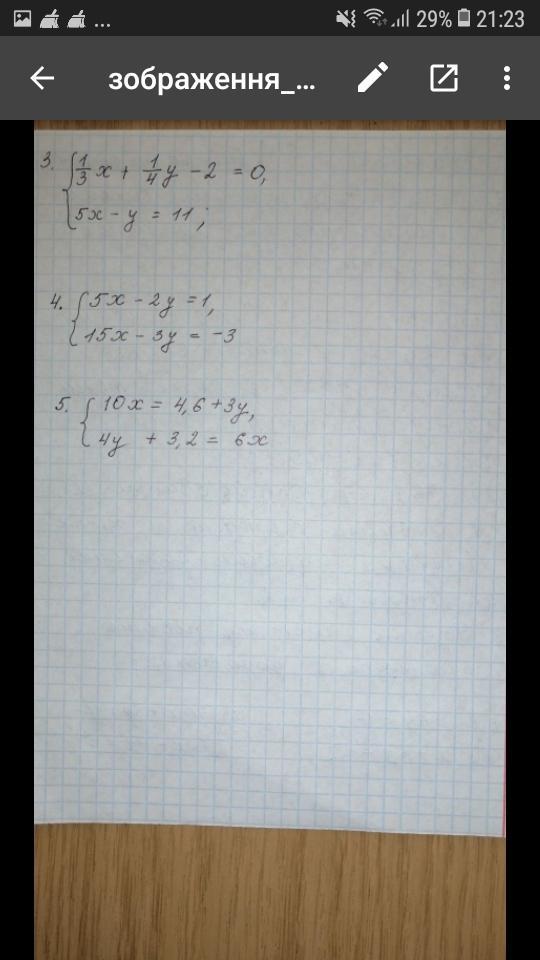 ... 29% 21:23
зображення_...
3. { 1/3 x + 1/4 y - 2 = 0,
5x - y = 11;
4. { 5x - 2y = 1,
15x - 3y = -3
5. { 10x = 4,6 + 3y,
4y + 3,2 = 6x